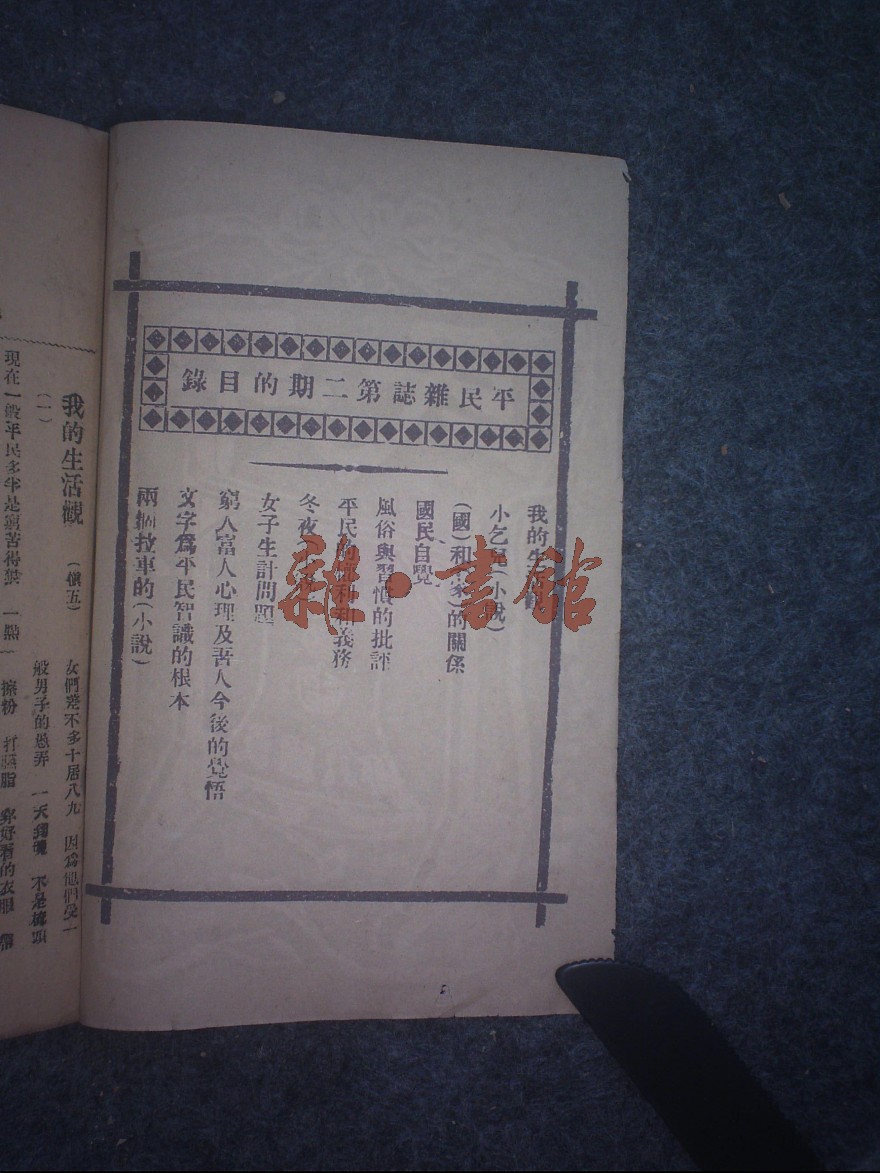 平民雜誌第二期的目錄
我的生活觀
小乞兒(小說)
(國)和(家)的關係
國民自覺
風俗與習慣的批評
平民的權利和義務
冬夜
女子生計問題
窮人富人心理及苦人今後的覺悟
文字爲平民智識的根本
兩個拉車的(小說)
雜·書館
我的生活觀 (愼五)
(一)
現在一般平民多半是窮苦得狠 一點
女們差不多十居八九 因爲他們受一
般男子的愚弄 一天 不是梳頭
擦粉 打胭脂 穿好看的衣服 帶